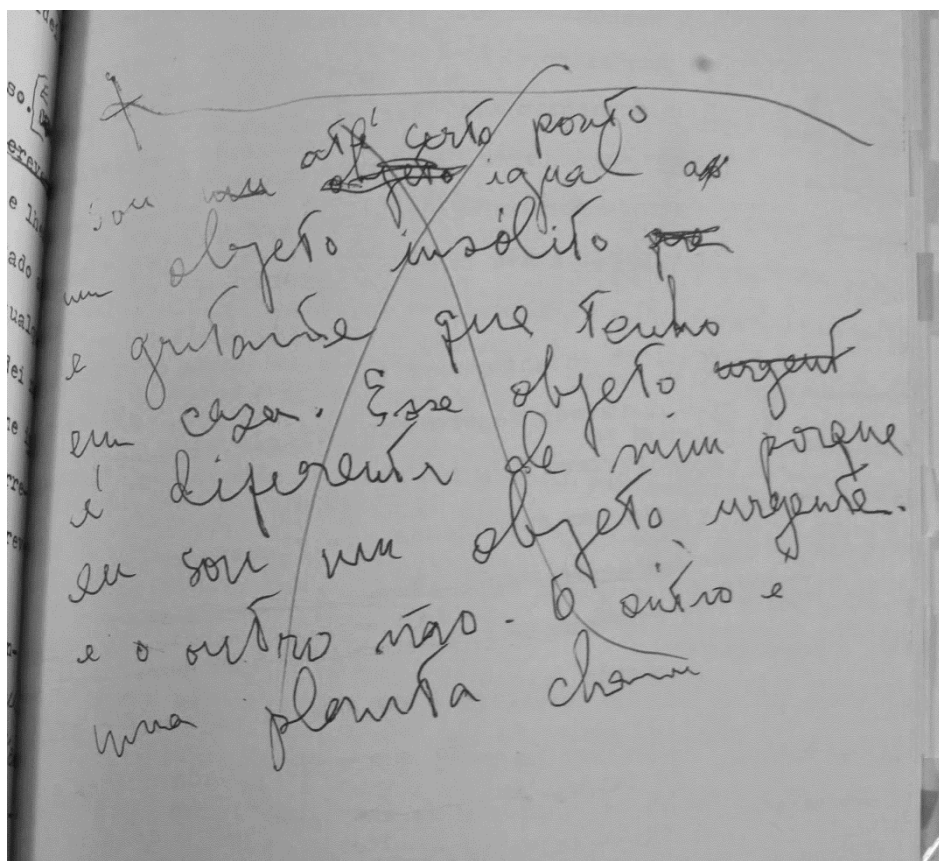 so.
ereve
e lhe
ado
até certo ponto
sou um objeto igual a
um objeto insólito
e gritante que tenho
em casa. Esse objeto urgent
é diferente de mim porque
eu sou um objeto urgente.
e o outro não. O outro é
uma planta cham